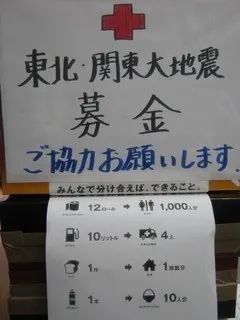 東北・関東大地震
募金
ご協力お願いします
みんなで分け合えば、できること。
12ロール 1,000人分
10リットル 4人
1斤 1家族分
1本 10人分